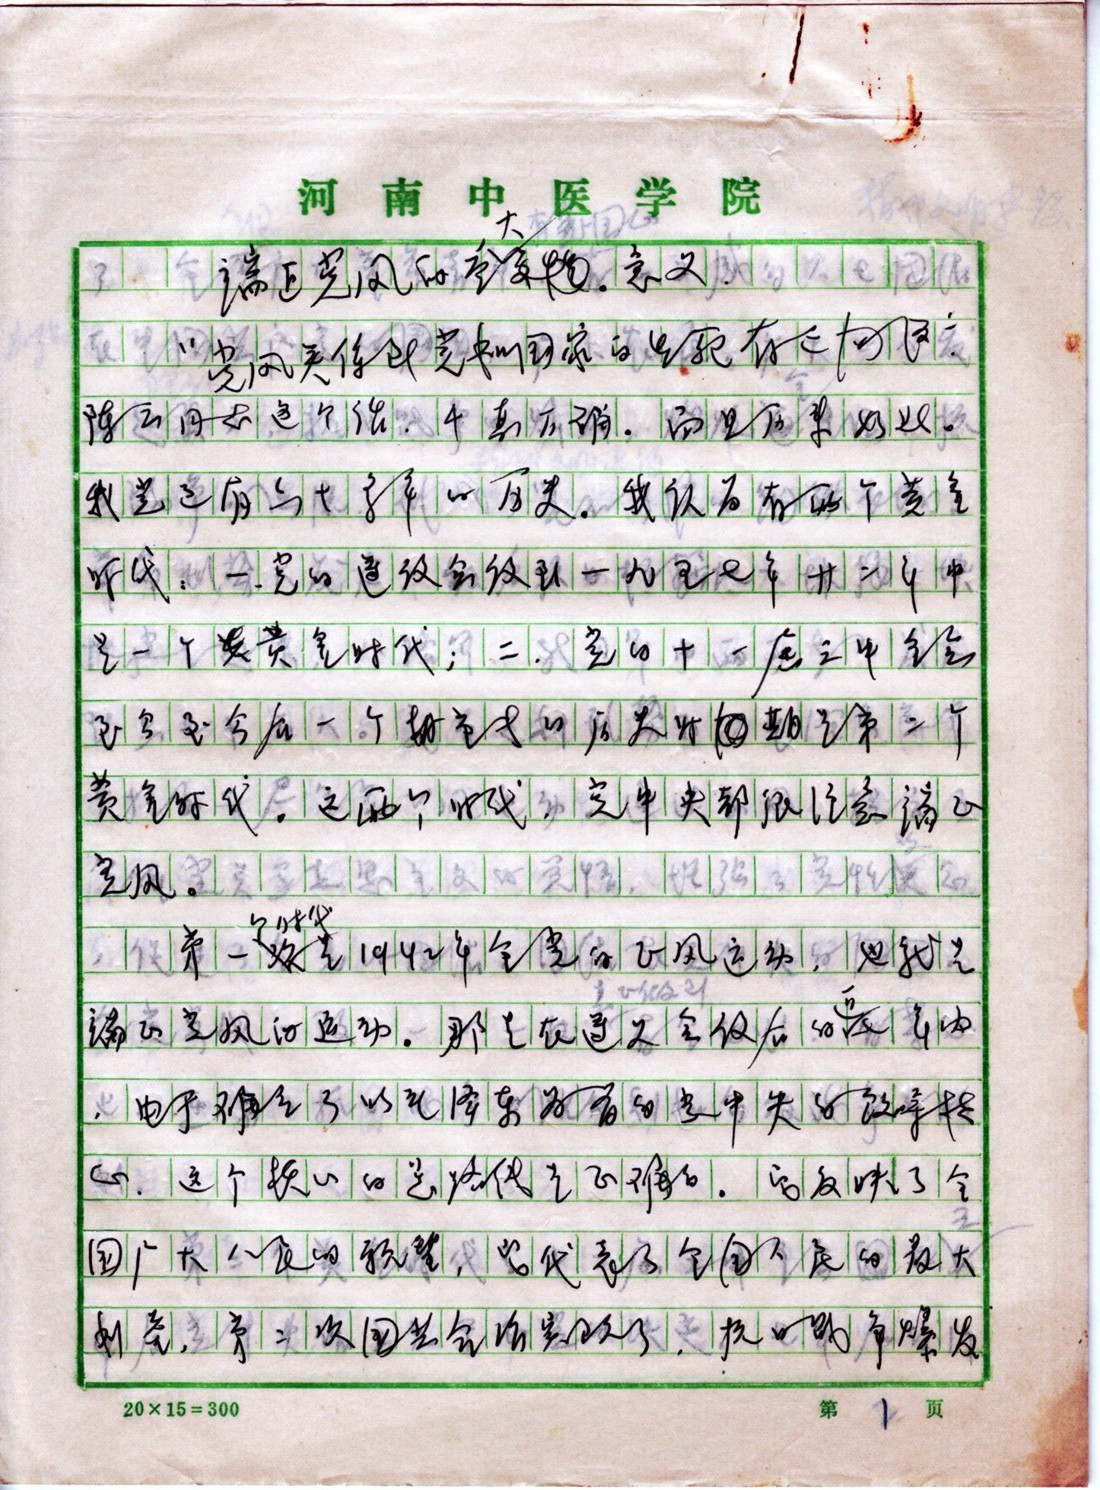 河南中医学院
端正党风的重大意义
党风关系到党和国家的生死存亡的问题
陈云同志这个话，千真万确。而且历来如此。
我党已有六十多年的历史。我认为有两个黄金
时代：一.党的遵义会议到一九五七年廿二年中
是一个黄金时代；二.党的十一届三中全会
至今至今后一个相当长的历史时期是第二个
黄金时代。这两个时代，党中央都很注意端正
党风。
第一个时代是1942年全党的正风运动，也就是
端正党风的运动。那是在遵义会议后的 年内
，由于确立了以毛泽东为首的党中央的领导核
心，这个核心的总路线是正确的。它反映了全
国广大人民的愿望，它代表了全国人民的最大
利益，第二次国共合作实现了，抗日战争爆发
20×15=300
第1页